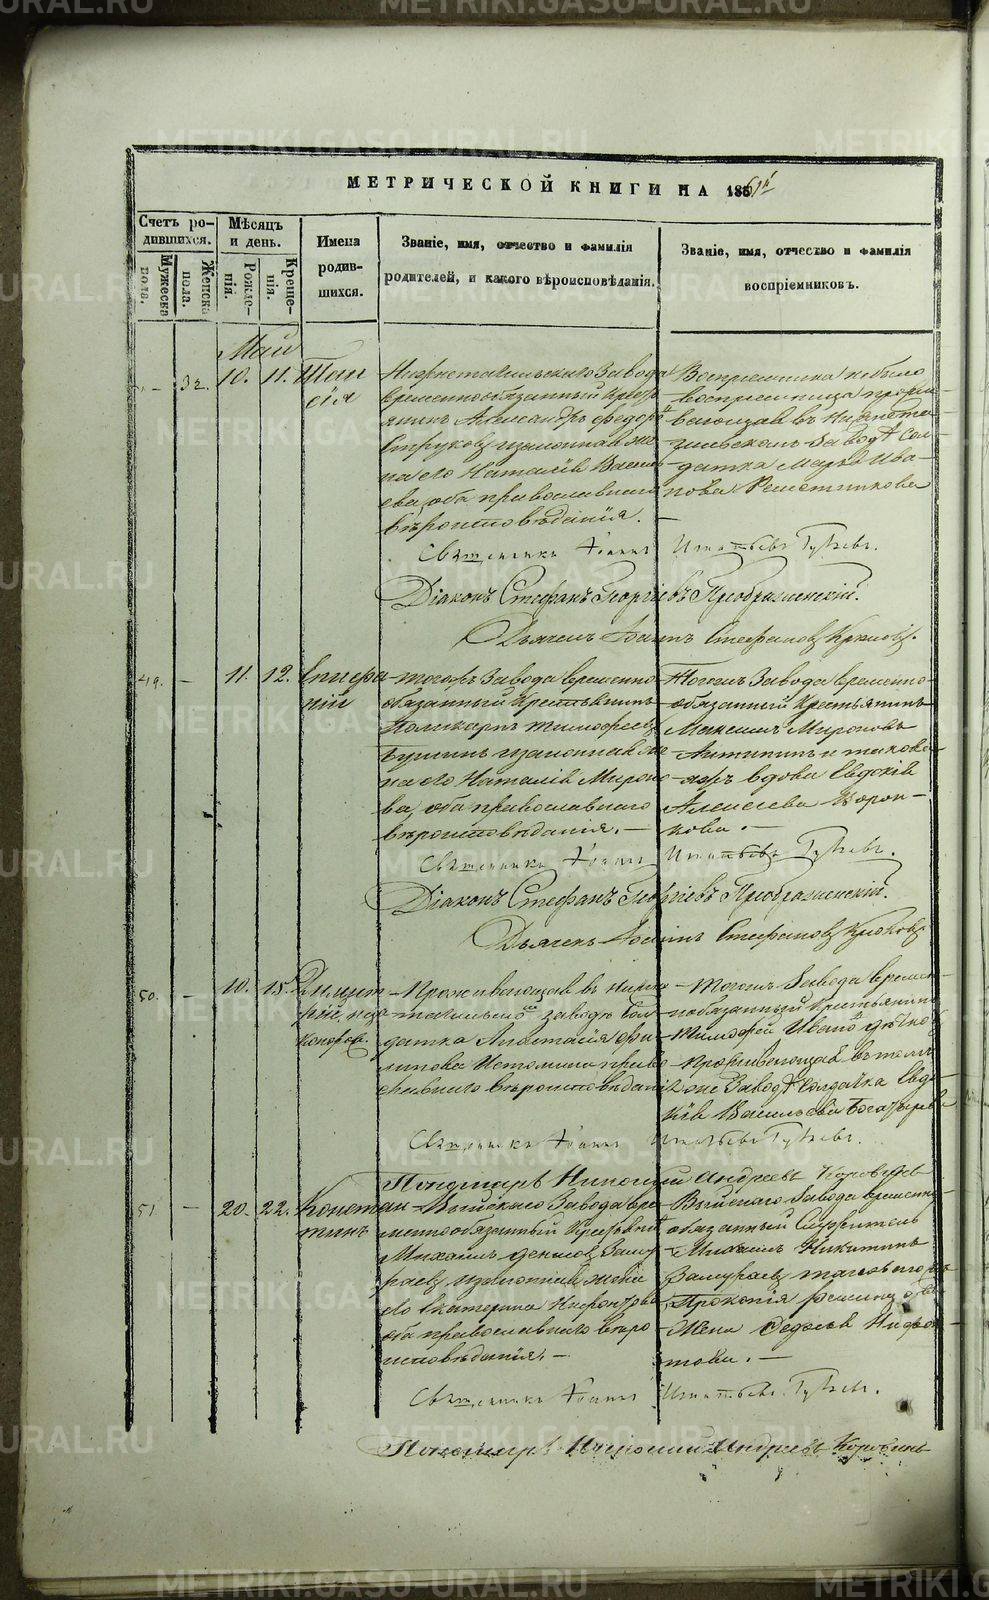 METRIKI.GASO-URAL.RU
МЕТРИЧЕСКОЙ КНИГИ НА 1861й
Счетъ родившихся.
Мѣсяцъ и день.
Имена родившихся.
Званіе, имя, отчество и фамилія родителей, и какого вѣроисповѣданія.
Званіе, имя, отчество и фамилія воспріемниковъ.
Мужеска пола.
Женска пола.
Рожденія.
Крещенія.
Май
- 32. 10. 11. Таисія
Нижнетагильскаго Завода
временнообязанный Крестьянинъ
Александръ Федоровъ
Струковъ и законная жена
его Наталія Васильева,
оба православнаго
вѣроисповѣданія.
Воспріемника не было
воспріемница проживающая
въ Нижнетагильскомъ
Заводѣ Солдатка
Марья Иванова
Решетникова
Священникъ Іоаннъ Игнатьевъ
Діаконъ Стефанъ Георгіевъ Преображенскій.
Дьячекъ Іоаннъ Стефановъ Крюковъ.
49. - 11. 12. Епифаній
тогожъ Завода временно
обязанный Крестьянинъ
Поликарпъ Тимофеевъ
и законная жена
его Наталія Миронова,
оба православнаго
вѣроисповѣданія.
Тогожъ Завода временно
обязанный Крестьянинъ
Максимъ Мироновъ
Антипинъ и таковагожъ
вдова Евдокія
Алексеева
Священникъ Іоаннъ Игнатьевъ
Діаконъ Стефанъ Георгіевъ Преображенскій.
Дьячекъ Іоаннъ Стефановъ Крюковъ
50. - 10. 15. Димитрій, незаконорож.
Проживающая въ Нижнетагильскомъ
заводѣ Солдатка
Анастасія Филипова
Истомина православнаго
вѣроисповѣданія
Тогожъ Завода временнообязанный
Крестьянинъ
Тимофей Ивановъ
проживающая въ томъ
же Заводѣ Солдатка Евдокія
Васильева Богатырева
Священникъ Іоаннъ Игнатьевъ
Пономарь Николай Андреевъ Коровинъ
51 - 20. 22. Константинъ
Выйскаго Завода временнообязанный
Крестьянинъ
Михаилъ Денисовъ
и законная жена
его Екатерина
оба православнаго вѣроисповѣданія.
Выйскаго Завода временно
обязанный Служитель
Михаилъ Никитинъ
Замураевъ
Прокопія
Жена Федосья
Священникъ Іоаннъ Игнатьевъ
Пономарь Николай Андреевъ Коровинъ